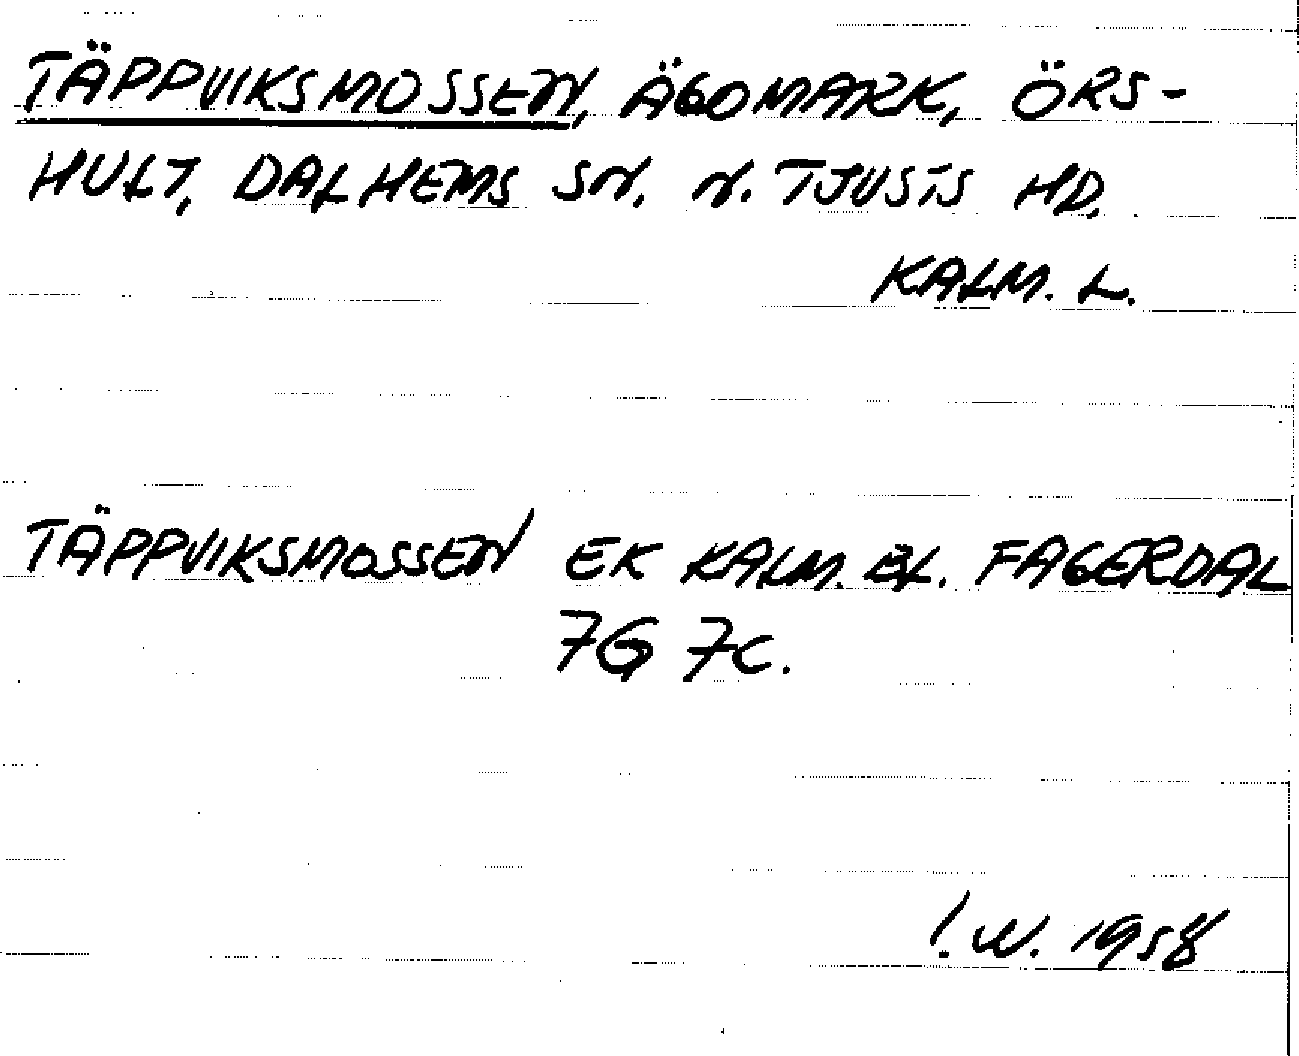 TÄPPVIKSMOSSEN, ÄGOMARK, ÖRS-
HULT, DALHEMS SN. N. TJUSTS HD.
KALM. L.
TÄPPVIKSMOSSEN EK KALM. BL. FAGERDAL
7G 7C.
! W. 1958